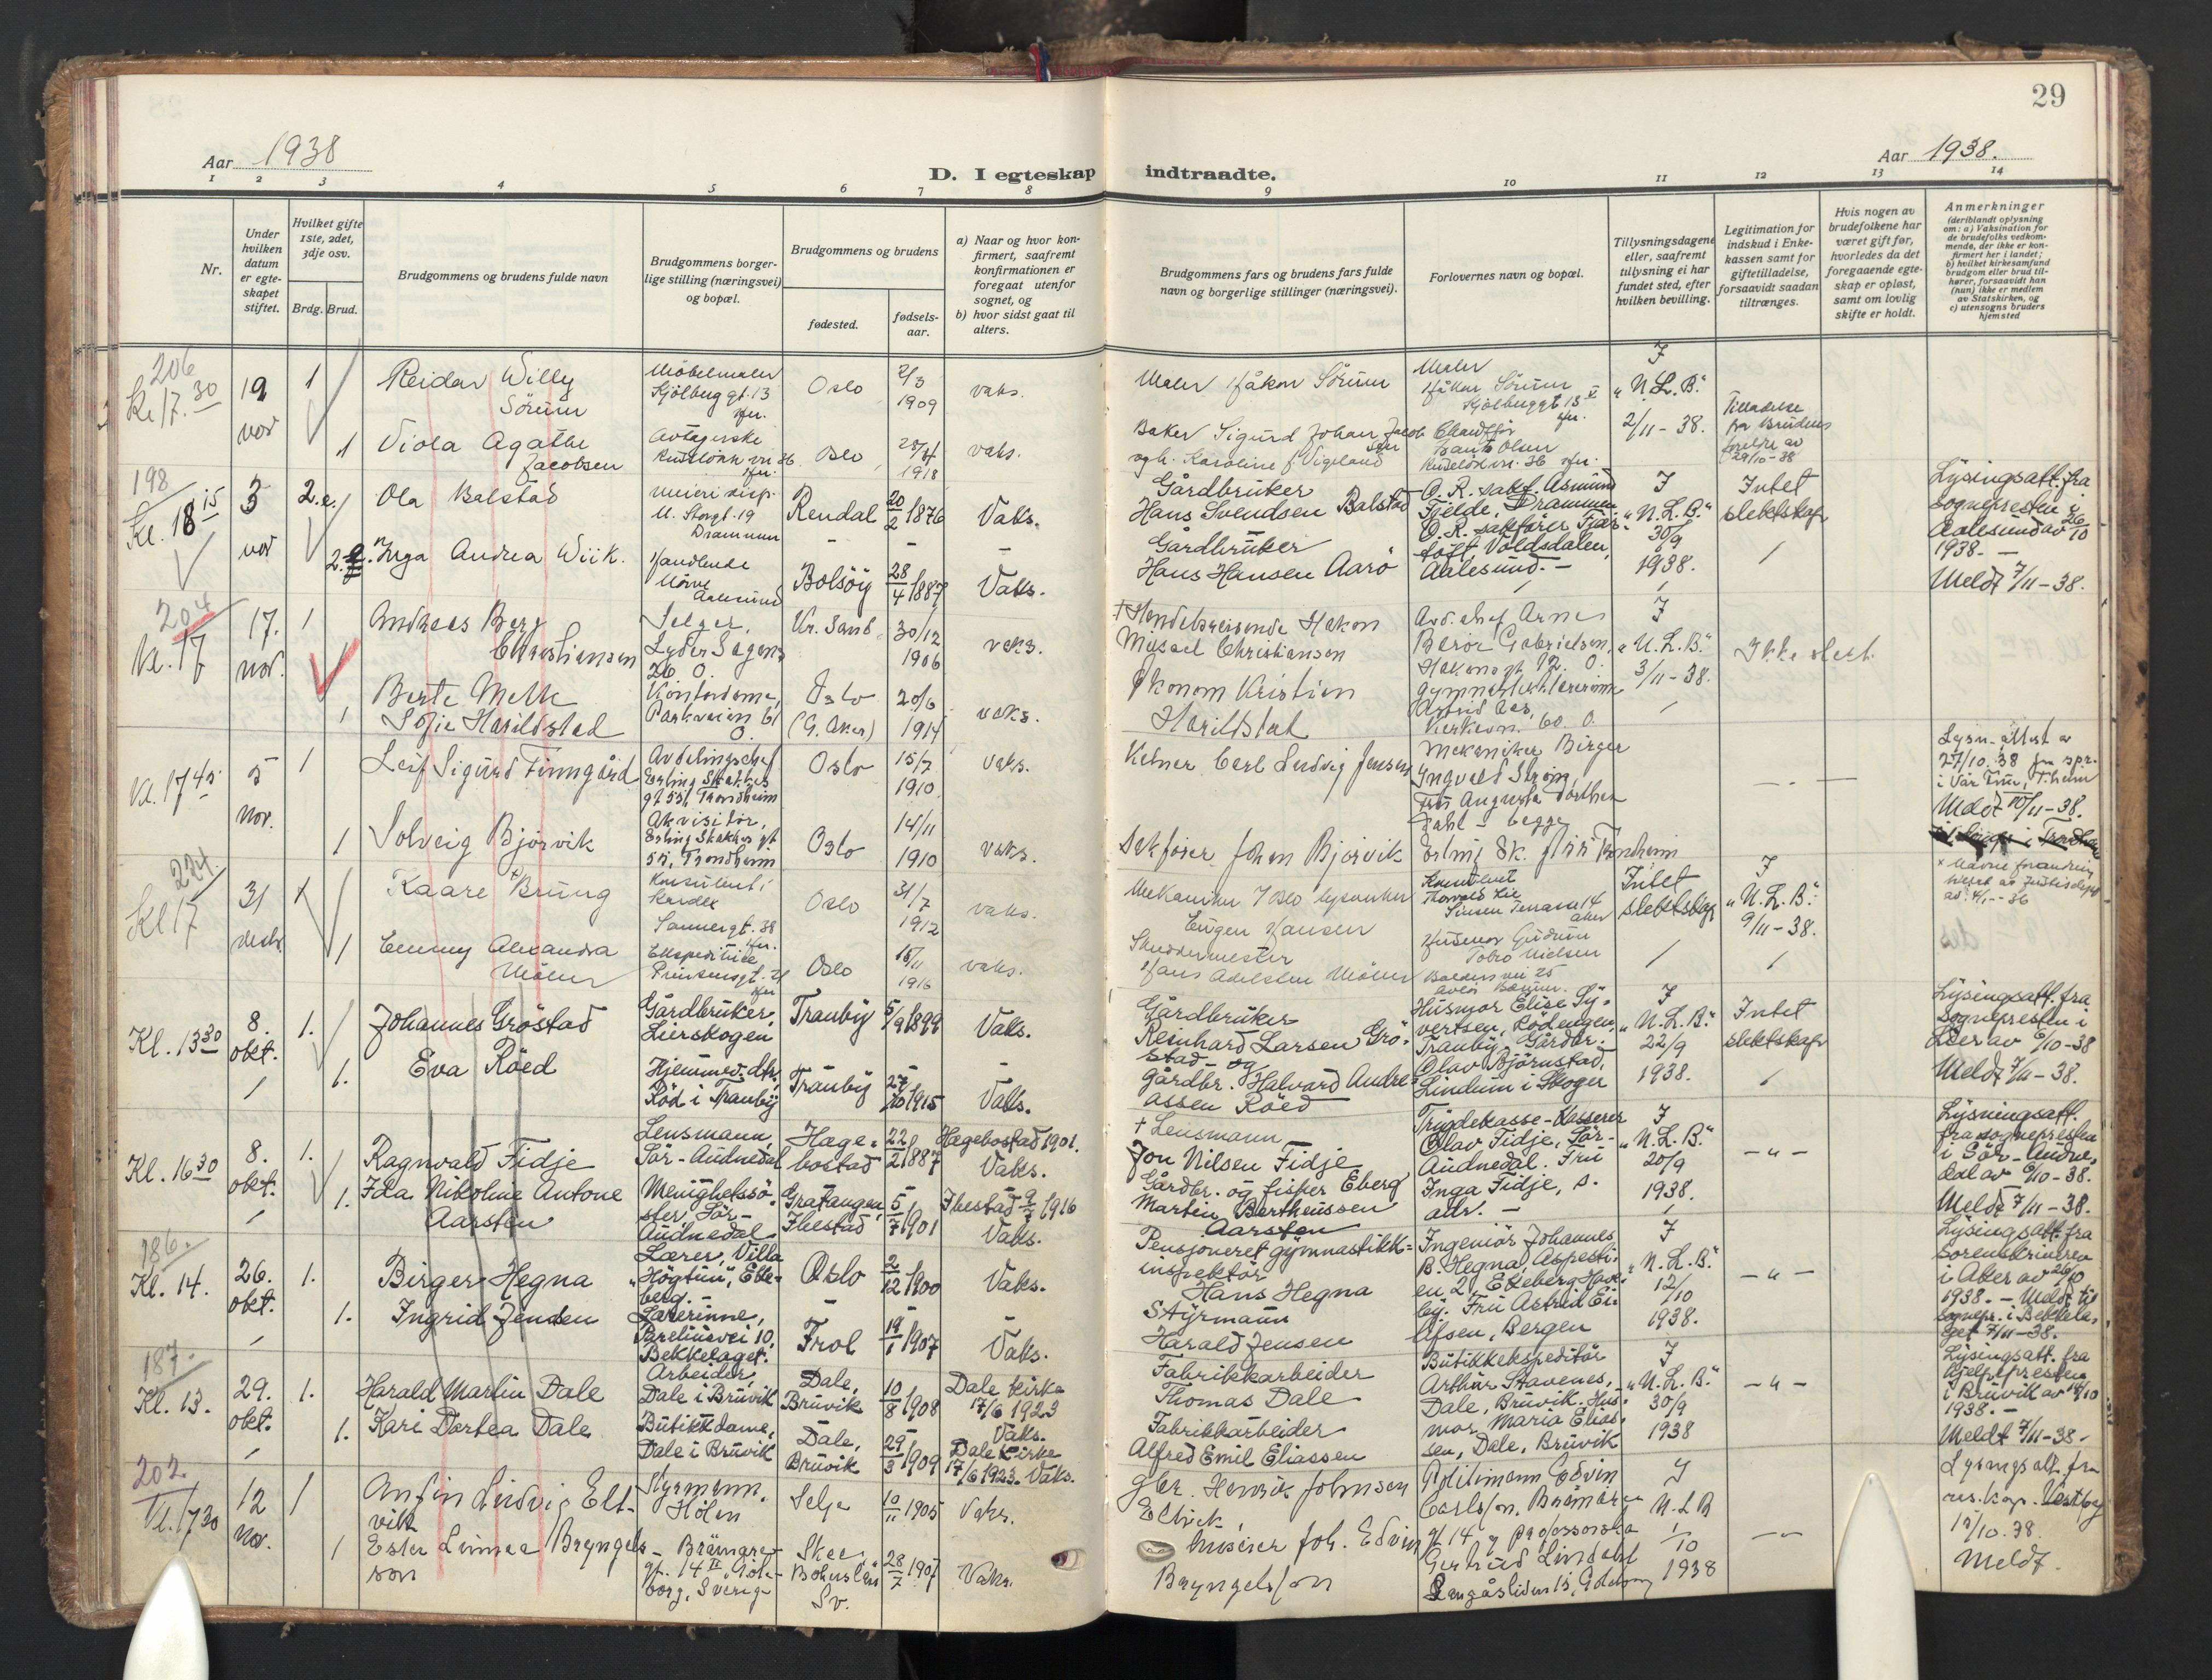 29
Aar 1938
Aar 1938.
D. I egteskap indtraadte.
1 2 3 4 5 6 7 8 9 10 11 12 13 14
Nr.
Under hvilken datum er egte-skapet stiftet.
Hvilket gifte 1ste, 2det, 3dje osv.
Brdg. Brud.
Brudgommens og brudens fulde navn
Brudgommens borger-lige stilling (næringsvei) og bopæl.
Brudgommens og brudens
fødested.
fødsels-aar.
a) Naar og hvor kon-firmert, saafremt konfirmationen er foregaat utenfor sognet, og
b) hvor sidst gaat til alters.
Brudgommens fars og brudens fars fulde navn og borgerlige stillinger (næringsvei).
Forlovernes navn og bopæl.
Tillysningsdagene eller, saafremt tillysning ei har fundet sted, efter hvilken bevilling.
Legitimation for indskud i Enke-kassen samt for giftetilladelse, forsaavidt saadan tiltrænges.
Hvis nogen av brudefolkene har været gift før, hvorledes da det foregaaende egte-skap er opløst, samt om lovlig skifte er holdt.
Anmerkninger
(deriblandt oplysning om: a) Vaksination for de brudefolks vedkom-mende, der ikke er kon-firmert her i landet;
b) hvilket kirkesamfund brudgom eller brud til-hører, forsaavidt han (hun) ikke er medlem av Statskirken, og
c) utensogns bruders hjemsted
206
Kl 17.30
19 nov
1
Reidar Willy Sørum
Møbelmaler
Kjølberggt. 13
Oslo
2/3 1909
vaks.
Maler Håkon Sørum
Maler
Håkon Sørum
Kjølberggt 13
"N.L.B."
2/11-38.
Tilladelse fra Brudens foreldre av 29/10-38
1
Viola Agathe Jacobsen
Oslo
1918
vaks.
Baker Sigurd Johan Jacobsen
Karoline f. Vigeland
Olsen
198
Kl. 18 15
3 nov
2.e.
Ola Balstad
Meieri disp.
St. Storgt. 19
Drammen
Rendal
20/2 1876
Vaks.
Gårdbruker
Hans Svendsen Balstad
O.R. sakf. Asmund
Fjelde, Drammen
O.R. sakfører
Voldsdalen,
Aalesund. -
"N.L.B."
30/9
1938.
Intet slektskap
Lysingsatt. fra
sognepresten i
Aalesund av 26/10
1938. -
Meldt 7/11-38.
Inga Andrea Wiik.
Handlende
Aalesund
Bolsöy
28/4 1887
Vaks.
Gårdbruker
Hans Hansen Aarö
204
Kl. 17
17. nov.
1
Andreas Berg Christiansen
Selger,
Lyder Sagens
26 O.
Kr. Sand
30/12 1906
vaks.
+ Handelsreisende Hakon
Misael Christiansen
Avd. chef Arne
Børse Gabrielsen,
"N.L.B."
3/11-38.
Ikke slekt.
1
Berte Melk
Sofie Harildstad
Kontordame,
Parkveien 61
O.
Oslo
(G. Aker)
20/6 1914
vaks.
Økonom Kristian
Harildstad
Astrid Aas,
Kirkevn. 60. O.
Kl. 17 45
5 nov.
1
Leif Sigurd Finngård
Avdelingschef
Erling Skakkes
gt 53, Trondheim
Oslo
15/7 1910.
vaks.
Kelner Carl Ludvig Jensen
Mekaniker Birger
Ingvald Strøm,
Fru Augusta Dorthea
Dahl - begge
Lysn. attest av
27/10.38 fra spr.
i Vår Frue, T.heim
Meldt 10/11-38.
1
Solveig Bjørvik
Akvisitør,
Erling Skakkes gt
53, Trondheim
Oslo
14/11 1910
vaks.
Sakfører Johan Bjørvik
224.
Kl 17
31 decbr.
1
Kaare Brung
Konsulent i
Kardex
Sannergt. 38
Oslo
31/7 1912
vaks.
Eugen Hansen
Konsulent
Thorvald Lie
Sinsen Terrasse 14
Intet slektskap
"N.L.B."
9/11-38.
x Navneforandring
1
Emmy Alexandra
Ekspeditrise
Prinsensgt. 21
Oslo
15/11 1916
vaks.
Skreddermester
Hans Adelsten
Husmor Gudrun
Tobro Nielsen
Baldersvei 25
Kl. 13 30
8. okt.
1.
Johannes Gröstad
Gårdbruker,
Lierskogen
Tranby
5/9 1899
Vaks.
Gårdbruker
Reinhard Larsen Grö-
stad - og
Husmor Elise Sy-
vertsen, Rödengen,
Tranby. Gårdbr.
Olav Björnstad,
Lindum i Skoger
"N.L.B."
22/9
1938.
Intet slektskap
Lysingsatt. fra
sognepresten i
Lier av 6/10-38
Meldt 7/11-38.
1.
Eva Röed
Hjemmev. dtr,
Röd i Tranby
Tranby
27/10 1915
Vaks.
Gårdbr. Halvard Andre-
assen Röed
Kl. 16 30
8. okt.
1.
Ragnvald Fidje
Lensmann,
Sör-Audnedal
Hæge-
bostad
22/2 1887
Hægebostad 1901.
Vaks.
+ Lensmann
Jon Nilsen Fidje
Trygdekasse-Kasserer
Olav Fidje, Sör-
Audnedal. Fru
Inga Fidje, s.
adr. -
"N.L.B."
20/9
1938.
- " -
Lysningsatt.
fra sognepresten
i Sör-Audne-
dal av 6/10-38.
Meldt 7/11-38.
1.
Ida Nikoline Antone
Aarsten
Menighetssö-
ster, Sör-
Audnedal
Gratangen,
Ibestad
5/7 1901
Ibestad 9/7 1916
Vaks.
Gårdbr. og fisker Eberg
Martin Bertheussen
Aarsten
186.
Kl. 14.
26. okt.
1.
Birger Hegna
Lærer, Villa
"Högtun", Eke-
berg. -
Oslo
2/12 1900
Vaks.
Pensjoneret gymnastikk-
inspektör
Hans Hegna
Ingeniör Johannes
B. Hegna,
en 2, Ekeberg Have-
by. Fru Astrid Ei-
lifsen, Bergen
"N.L.B."
12/10
1938.
- " -
Lysingsatt. fra
sorenskriveren
i Aker av 26/10
1938. - Meldt til
sognepr. i Bekkela-
get 7/11-38.
1.
Ingrid Jensen
Lærerinne,
Breliusvei 10,
Bekkelaget.
Frol
19/1 1907
Vaks.
Styrmann
Harald Jensen
187.
Kl. 13.
29. okt.
1.
Harald Martin Dale
Arbeider,
Dale i Bruvik
Dale,
Bruvik
10/8 1908
Dale kirke
17/6 1923
Vaks.
Fabrikkarbeider
Thomas Dale
Butikkekspeditör
Arthur Stavenes,
Dale, Bruvik. Hus-
mor Maria Elias-
sen, Dale, Bruvik
"N.L.B."
30/9
1938
- " -
Lysingsatt. fra
hjelpepresten
i Bruvik av 14/10
1938. -
Meldt 7/11-38-
1.
Kari Dortea Dale
Butikkdame,
Dale i Bruvik
Dale,
Bruvik
29/3 1909
Dale kirke
17/6 1923. Vaks.
Fabrikkarbeider
Alfred Emil Eliassen
202.
Kl. 17 30
12 nov.
1
Anfin Ludvig Elt-
vik
Styrmann,
Hölen
Selje
10/11 1905
Vaks.
Gbr. Henrik Johnsen
Eltvik,
Politimann Edvin
Carlsson, Brämare-
gt 14 og professorska
Gertrud Lindahl
N.L.B
1/10
1938
Lysingsatt. fra
res. kap. Vestby
15/10.38.
Meldt.
1
Ester Linnea Bryngels-
son
Brämare-
gt. 14 II, Göte-
borg, Sverige
Skee
Bohuslän
Sv.
28/7 1907
Vaks.
Joh. Edvin
Bryngelsson